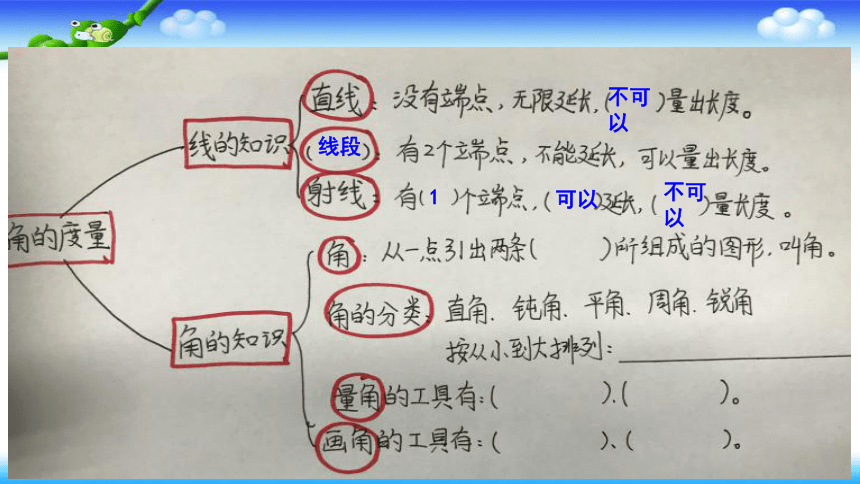 直线：没有端点，无限延长，(不可以)量出长度。
线的知识
(线段)：有2个端点，不能延长，可以量出长度。
射线：有(1)个端点，(可以)延长，(不可以)量长度。
角的度量
角：从一点引出两条( )所组成的图形，叫角。
角的分类：直角、钝角、平角、周角、锐角
角的知识
按从小到大排列：
量角的工具有：( )、( )。
画角的工具有：( )、( )。